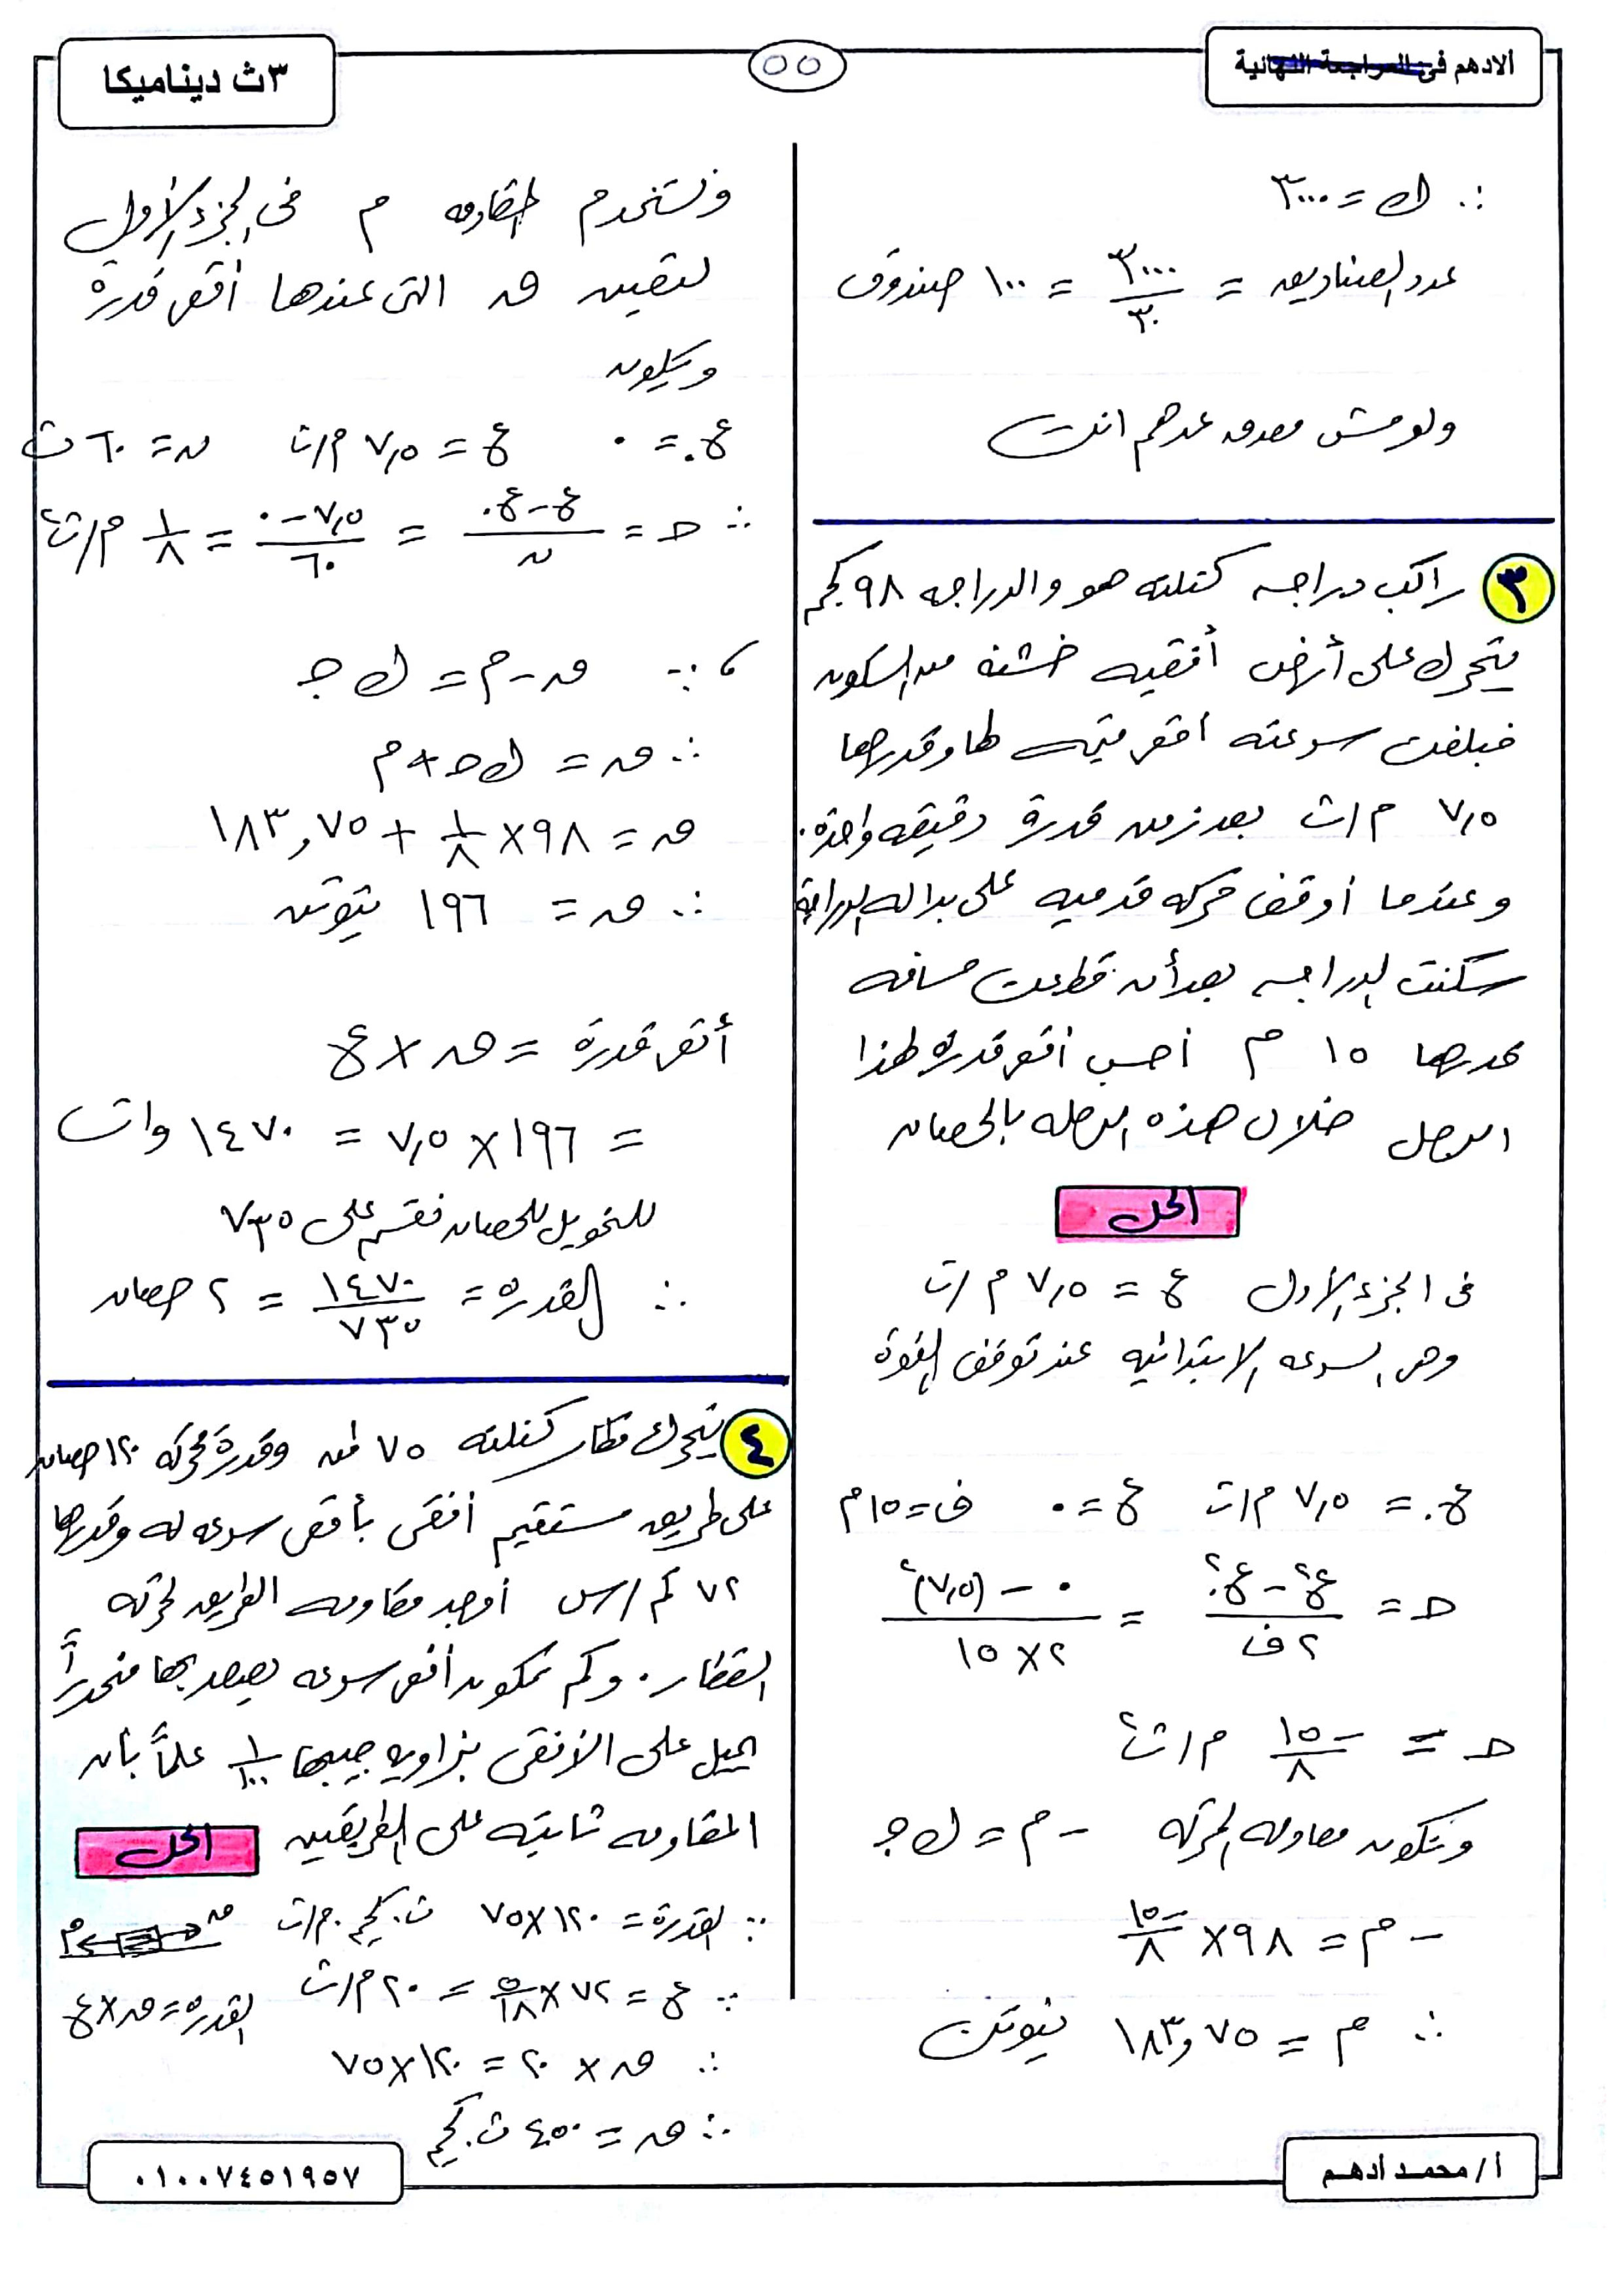 الادهم فى المراجعة النهائية
٥٥
٣ث ديناميكا
∴ ك = ٣٠٠٠
عدد الصناديق = ٣٠٠٠/٣٠ = ١٠٠ صندوق
ولو مش مصدق عدهم انت
٣ راكب دراجه كتلته هو والدراجه ٩٨ كجم
يتحرك على أرض أفقيه خشنه من السكون
فبلغت سرعته اقصى قيمه لها وقدرها
٧,٥ م/ث بعد زمن قدره دقيقه واحدة.
وعندما أوقف حركه قدميه على بداله الدراجة
سكنت الدراجه بعد أن قطعت مسافه
قدرها ١٥ م احسب اقصى قدرة لهذا
الرجل خلال هذه الرحله بالحصان
الحل
فى الجزء الأول ع = ٧,٥ م/ث
وهى السرعه الابتدائيه عند توقف القوة
ع. = ٧,٥ م/ث ع = ٠ ف = ١٥م
حـ = (ع٢ − ع.٢)/٢ف = (٠ − (٧,٥)٢)/(٢ × ١٥)
حـ = −١٥/٨ م/ث٢
وتكون معادله الحركه − م = ك جـ
− م = ٩٨ × −١٥/٨
∴ م = ١٨٣,٧٥ نيوتن
ونستخدم المقاومه م فى الجزء الأول
لتعيين ق التى عندها أقصى قدرة
ويكون
ع. = ٠ ع = ٧,٥ م/ث ن = ٦٠ ث
∴ حـ = (ع − ع.)/ن = (٧,٥ − ٠)/٦٠ = ١/٨ م/ث٢
، ∵ ق − م = ك جـ
∴ ق = ك حـ + م
ق = ٩٨ × ١/٨ + ١٨٣,٧٥
∴ ق = ١٩٦ نيوتن
أقصى قدرة = ق × ع
= ١٩٦ × ٧,٥ = ١٤٧٠ وات
للتحويل للحصان نقسم على ٧٣٥
∴ القدرة = ١٤٧٠/٧٣٥ = ٢ حصان
٤ يتحرك قطار كتلته ٧٥ طن وقدرة محركه ١٢٠ حصان
على طريق مستقيم أفقى بأقصى سرعه له وقدرها
٧٢ كم/س أوجد مقاومه الطريق لحركه
القطار. وكم تكون أقصى سرعه يصعد بها منحدراً
يميل على الأفقى بزاويه جيبها ١/١٠٠ علماً بأن
المقاومه ثابته على الطريقين
الحل
∵ القدرة = ١٢٠ × ٧٥ ث.كجم.م/ث
م ق
∵ ع = ٧٢ × ٥/١٨ = ٢٠ م/ث
القدرة = ق × ع
∴ ق × ٢٠ = ١٢٠ × ٧٥
∴ ق = ٤٥٠ ث.كجم
أ/ محمد أدهم
٠١٠٠٧٤٥١٩٥٧